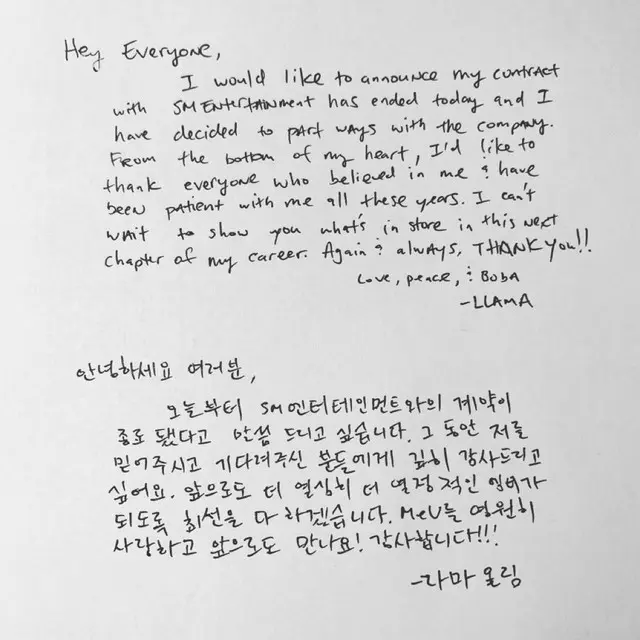 Hey Everyone,
I would like to announce my contract
with SM Entertainment has ended today and I
have decided to part ways with the company.
From the bottom of my heart, I'd like to
thank everyone who believed in me & have
been patient with me all these years. I can't
wait to show you what's in store in this next
chapter of my career. Again & always, THANK YOU!!
Love, peace, & Boba
-LLAMA
안녕하세요 여러분,
오늘부터 SM엔터테인먼트와의 계약이
종료 됐다고 말씀 드리고 싶습니다. 그 동안 저를
믿어주시고 기다려주신 분들에게 깊히 감사드리고
싶어요. 앞으로도 더 열심히 더 열정적인 엠버가
되도록 최선을 다 하겠습니다. MeU를 영원히
사랑하고 앞으로도 만나요! 감사합니다!!!
-라마 올림